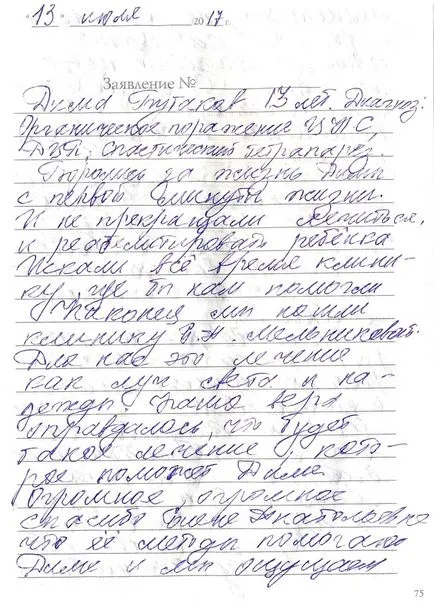 13 июля 2017 г.
Заявление №
Дима Бутаков 13 лет. Диагноз:
Органическое поражение ЦНС,
ДЦП, спастический тетрапарез.
Боролись за жизнь Димы
с первой минуты жизни.
И не прекращали лечиться,
и реабелитировать ребёнка
Искали всё время клини-
ку, где бы нам помогли
Наконец мы нашли
клинику Е.А. Мельниковой.
Для нас это лечение
как луч света и на-
дежды. Наша вера
оправдалась, что будет
такое лечение, кото-
рое поможет Диме
Огромное огромное
спасибо Елене Анатольевне
что её методы помогают
Диме и мы ощущаем
75